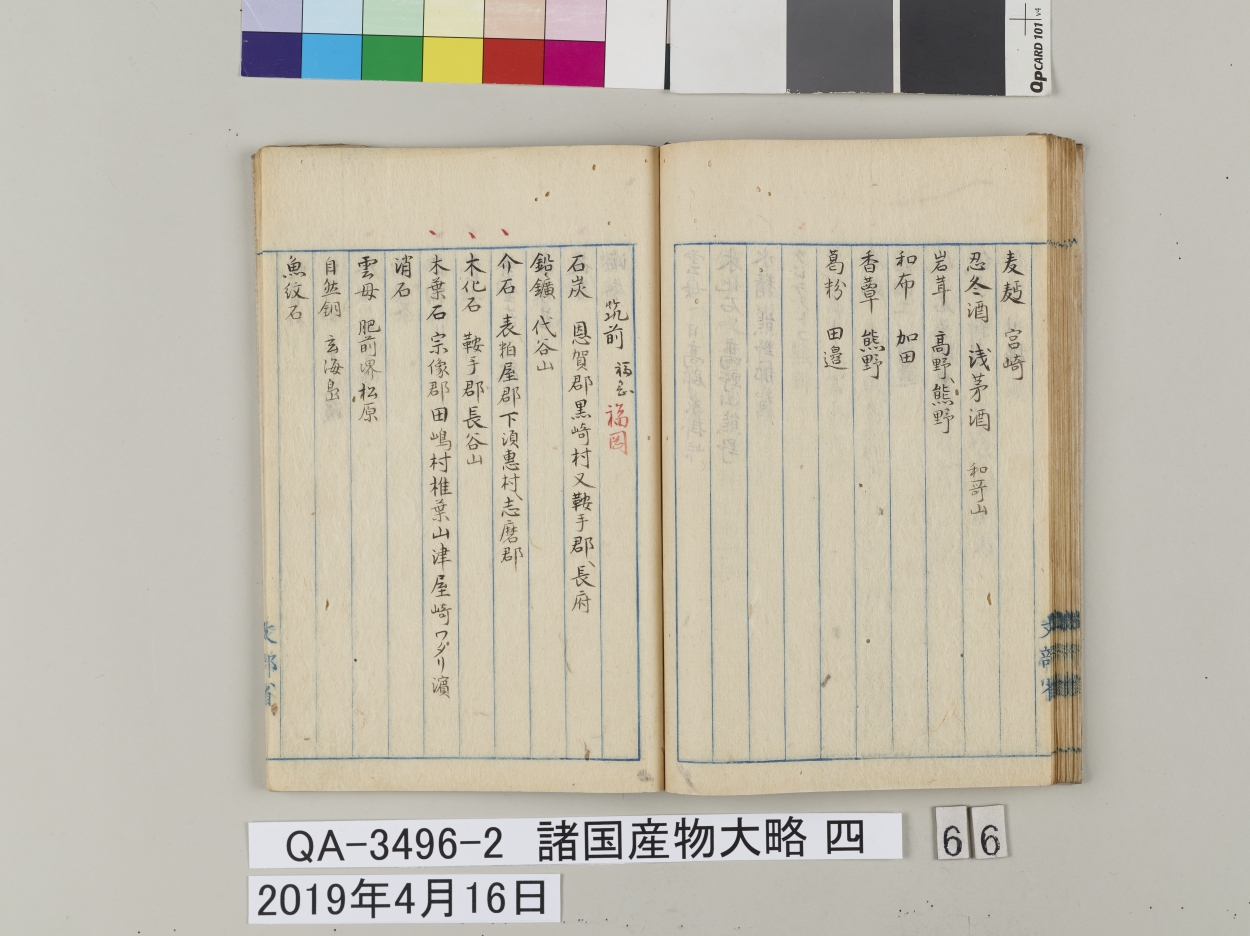 QpCARD 101 v4
麦麹 宮崎
忍冬酒 浅茅酒 和哥山
岩茸 高野、熊野
和布 加田
香蕈 熊野
葛粉 田邉
文部省
筑前 福岡
石炭 恩賀郡黒崎村又鞍手郡、長府
鉛鑛 代谷山
介石 表粕屋郡下須惠村、志磨郡
木化石 鞍手郡長谷山
木葉石 宗像郡田嶋村椎葉山津屋崎ワダリ濱
消石
雲母 肥前堺松原
自然銅 玄海島
魚紋石
文部省
QA-3496-2 諸国産物大略 四
66
2019年4月16日